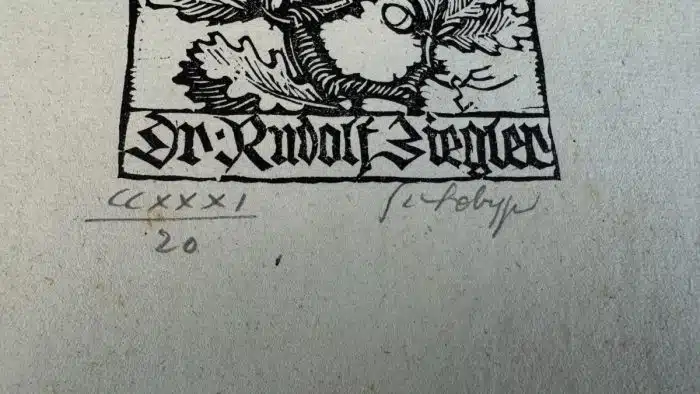 Dr. Rudolf Ziegler
CCXXXI
20